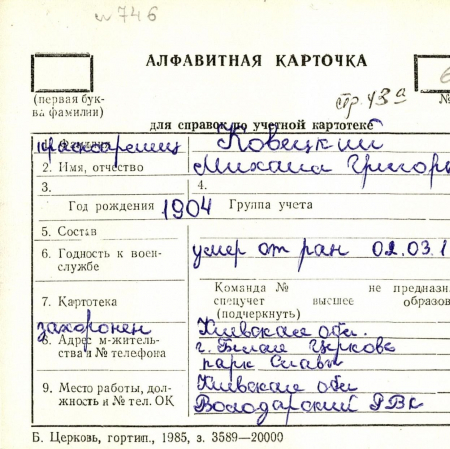 № 746
АЛФАВИТНАЯ КАРТОЧКА
(первая бук-
ва фамилии)
стр. 43а
№
для справок по учетной картотеке
красноармеец Ковецкий
2. Имя, отчество Михаил Григорь
3. 4.
Год рождения 1904 Группа учета
5. Состав
6. Годность к воен-
службе
умер от ран 02.03.1
Команда № не предназн
спецучет высшее образов
(подчеркнуть)
7. Картотека
захоронен Киевская обл.
8. Адрес м-житель-
ства и № телефона
г. Белая Церковь
парк Славы
9. Место работы, дол-
жность и № тел. ОК
Киевская обл
Володарский РВК
Б. Церковь, гортип., 1985, з. 3589—20000